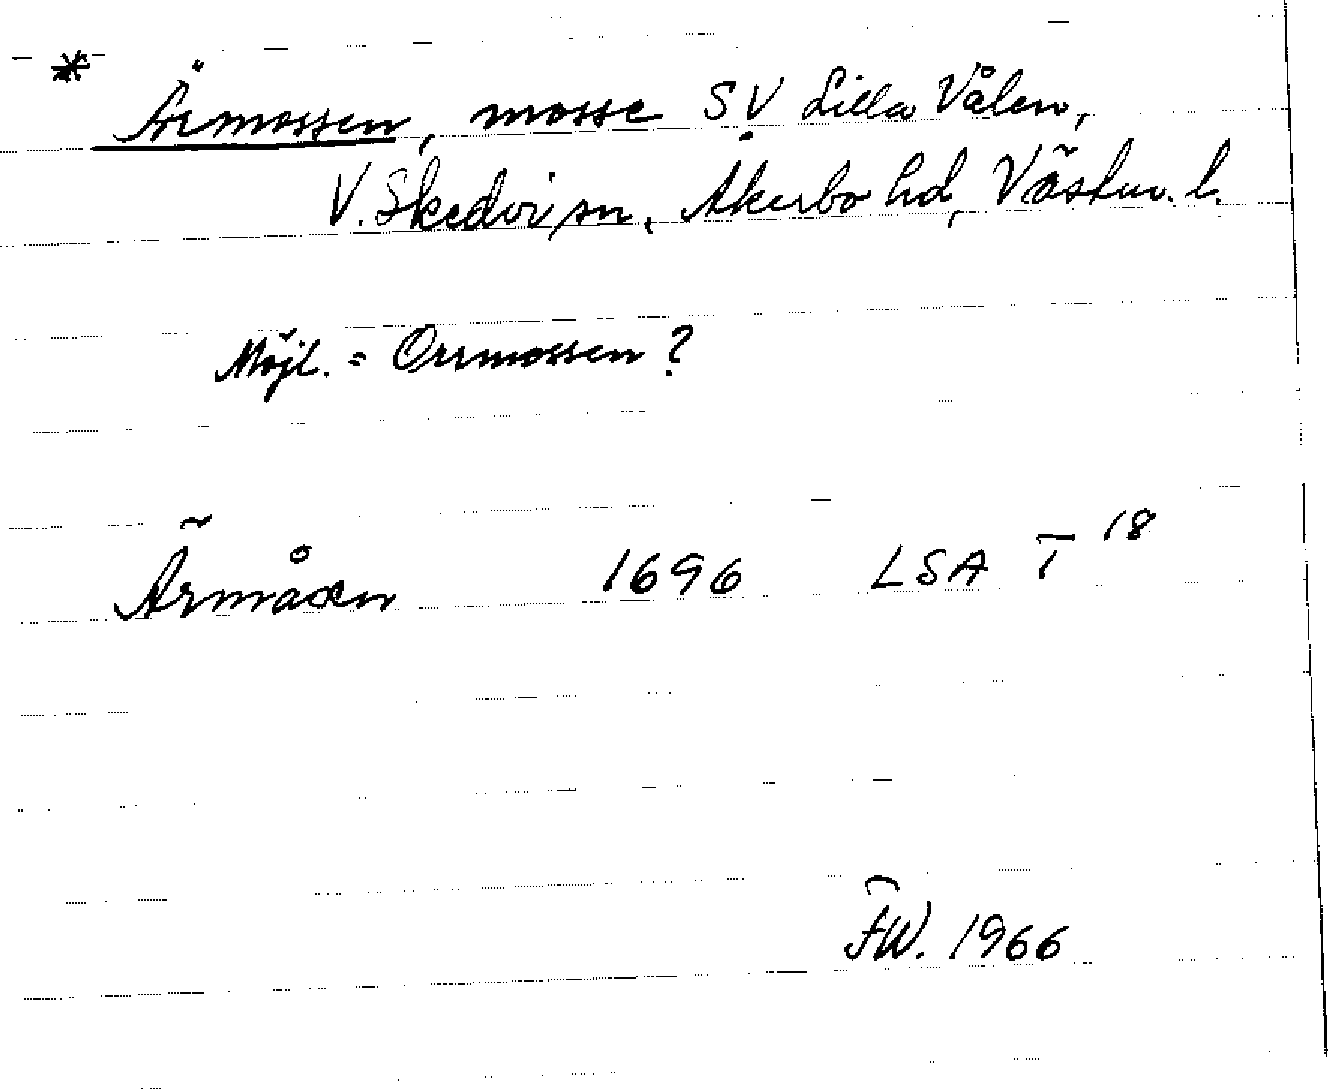 * Ärmossen, mosse SV Lilla Vålen,
V. Skedvi sn, Åkerbo hd, Västm. l.
Möjl. = Orrmossen?
Ärmåsen 1696 LSA T 18
FW. 1966